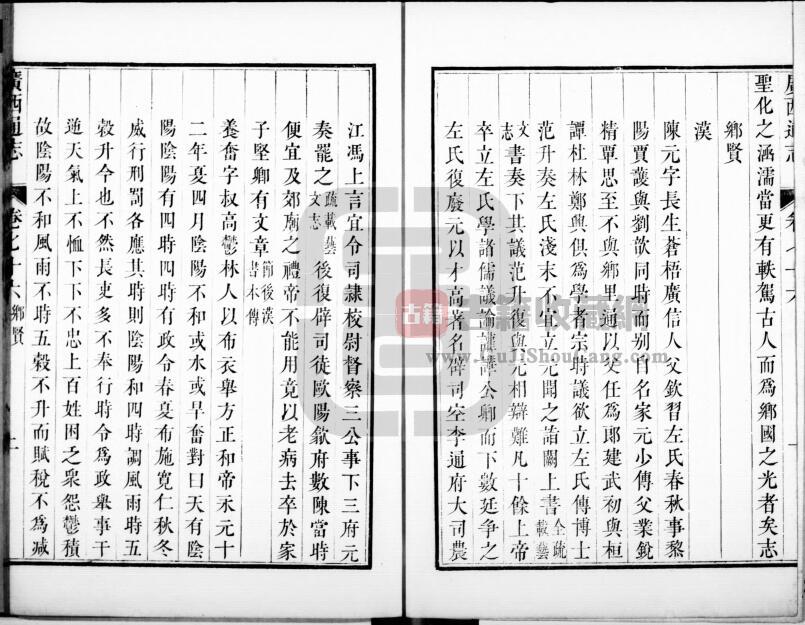 廣西通志 卷七十六 一
聖化之涵濡當更有軼駕古人而為鄉國之光者矣志
鄉賢
漢
陳元字長生蒼梧廣信人父欽習左氏春秋事黎
陽賈護與劉歆同時而別自名家元少傳父業銳
精覃思至不與鄉里通以父任為郎建武初與桓
譚杜林鄭興俱為學者宗時議欲立左氏傳博士
范升奏左氏淺末不宜立元聞之詣闕上書全疏載藝
文志書奏下其議范升復與元相辯難凡十餘上帝
卒立左氏學諸儒議論讙譁公卿而下數廷爭之
左氏復廢元以才高著名辟司空李通府大司農
江馮上言宜令司隸校尉督察三公事下三府元
奏罷之疏載藝文志後復辟司徒歐陽歙府數陳當時
便宜及郊廟之禮帝不能用竟以老病去卒於家
子堅卿有文章節後漢書本傳
養奮字叔高鬱林人以布衣舉方正和帝永元十
二年夏四月陰陽不和或水或旱奮對曰天有陰
陽陰陽有四時四時有政令春夏布施寬仁秋冬
威行刑罰各應其時則陰陽和四時調風雨時五
穀升今也不然長吏多不奉行時令為政舉事干
逆天氣上不恤下下不忠上百姓困乏衆怨鬱積
故陰陽不和風雨不時五穀不升而賦稅不為減
廣西通志 卷七十六 鄉賢 二
古籍 古籍收藏網
www.GuJiShouCang.com